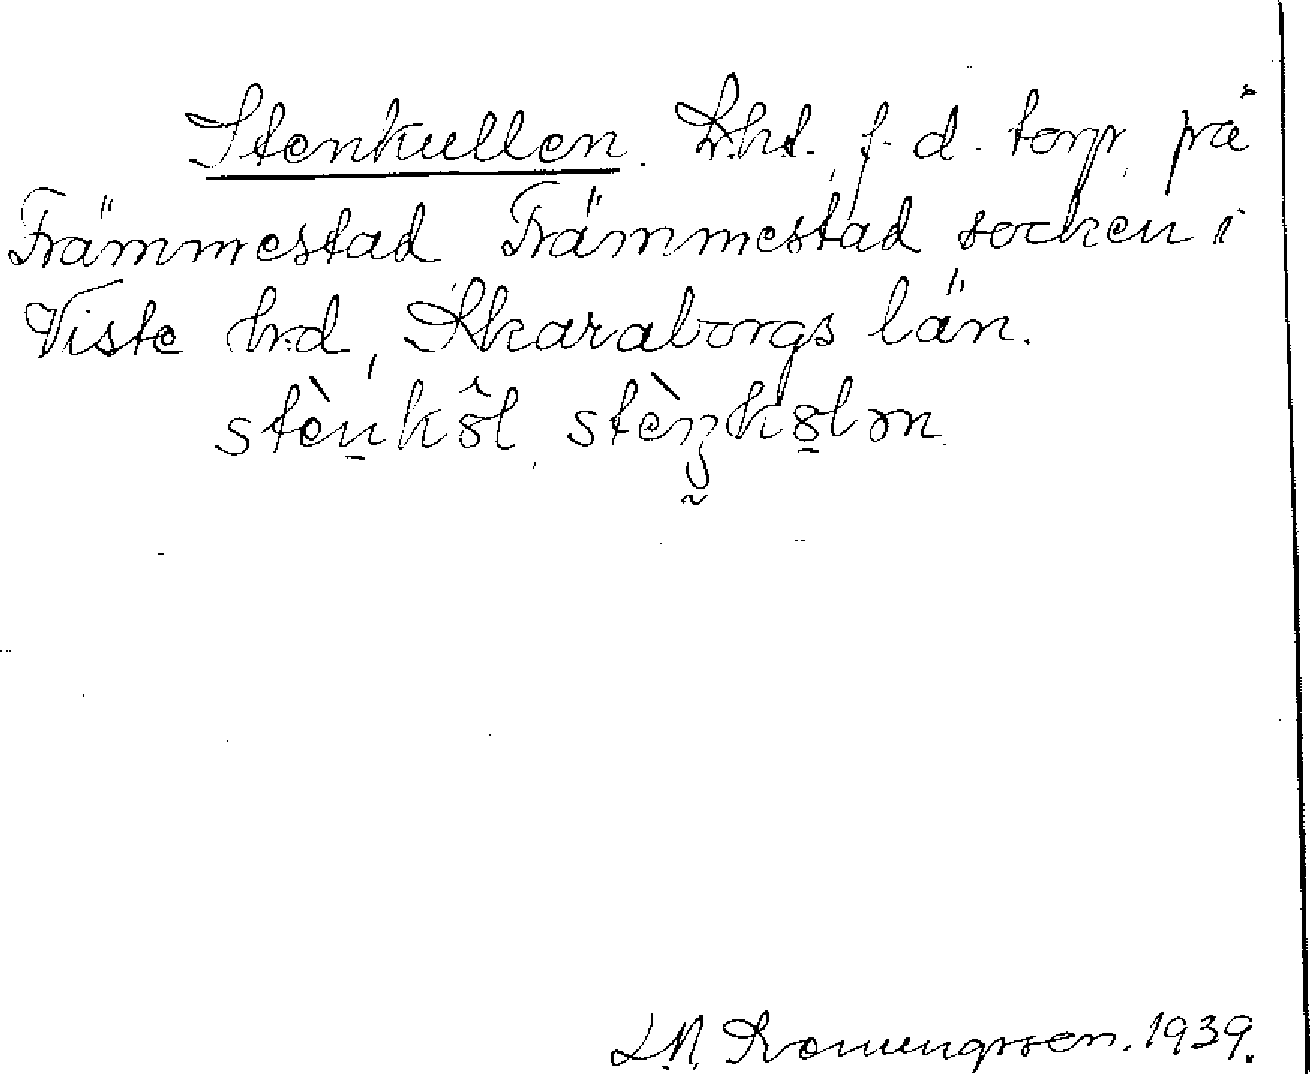 Stenkullen. Lht. f. d. torp på
Främmestad Främmestad socken i
Viste hd, Skaraborgs län.
stèn̠kôl, stèŋko̠lən
L.N. 1939.